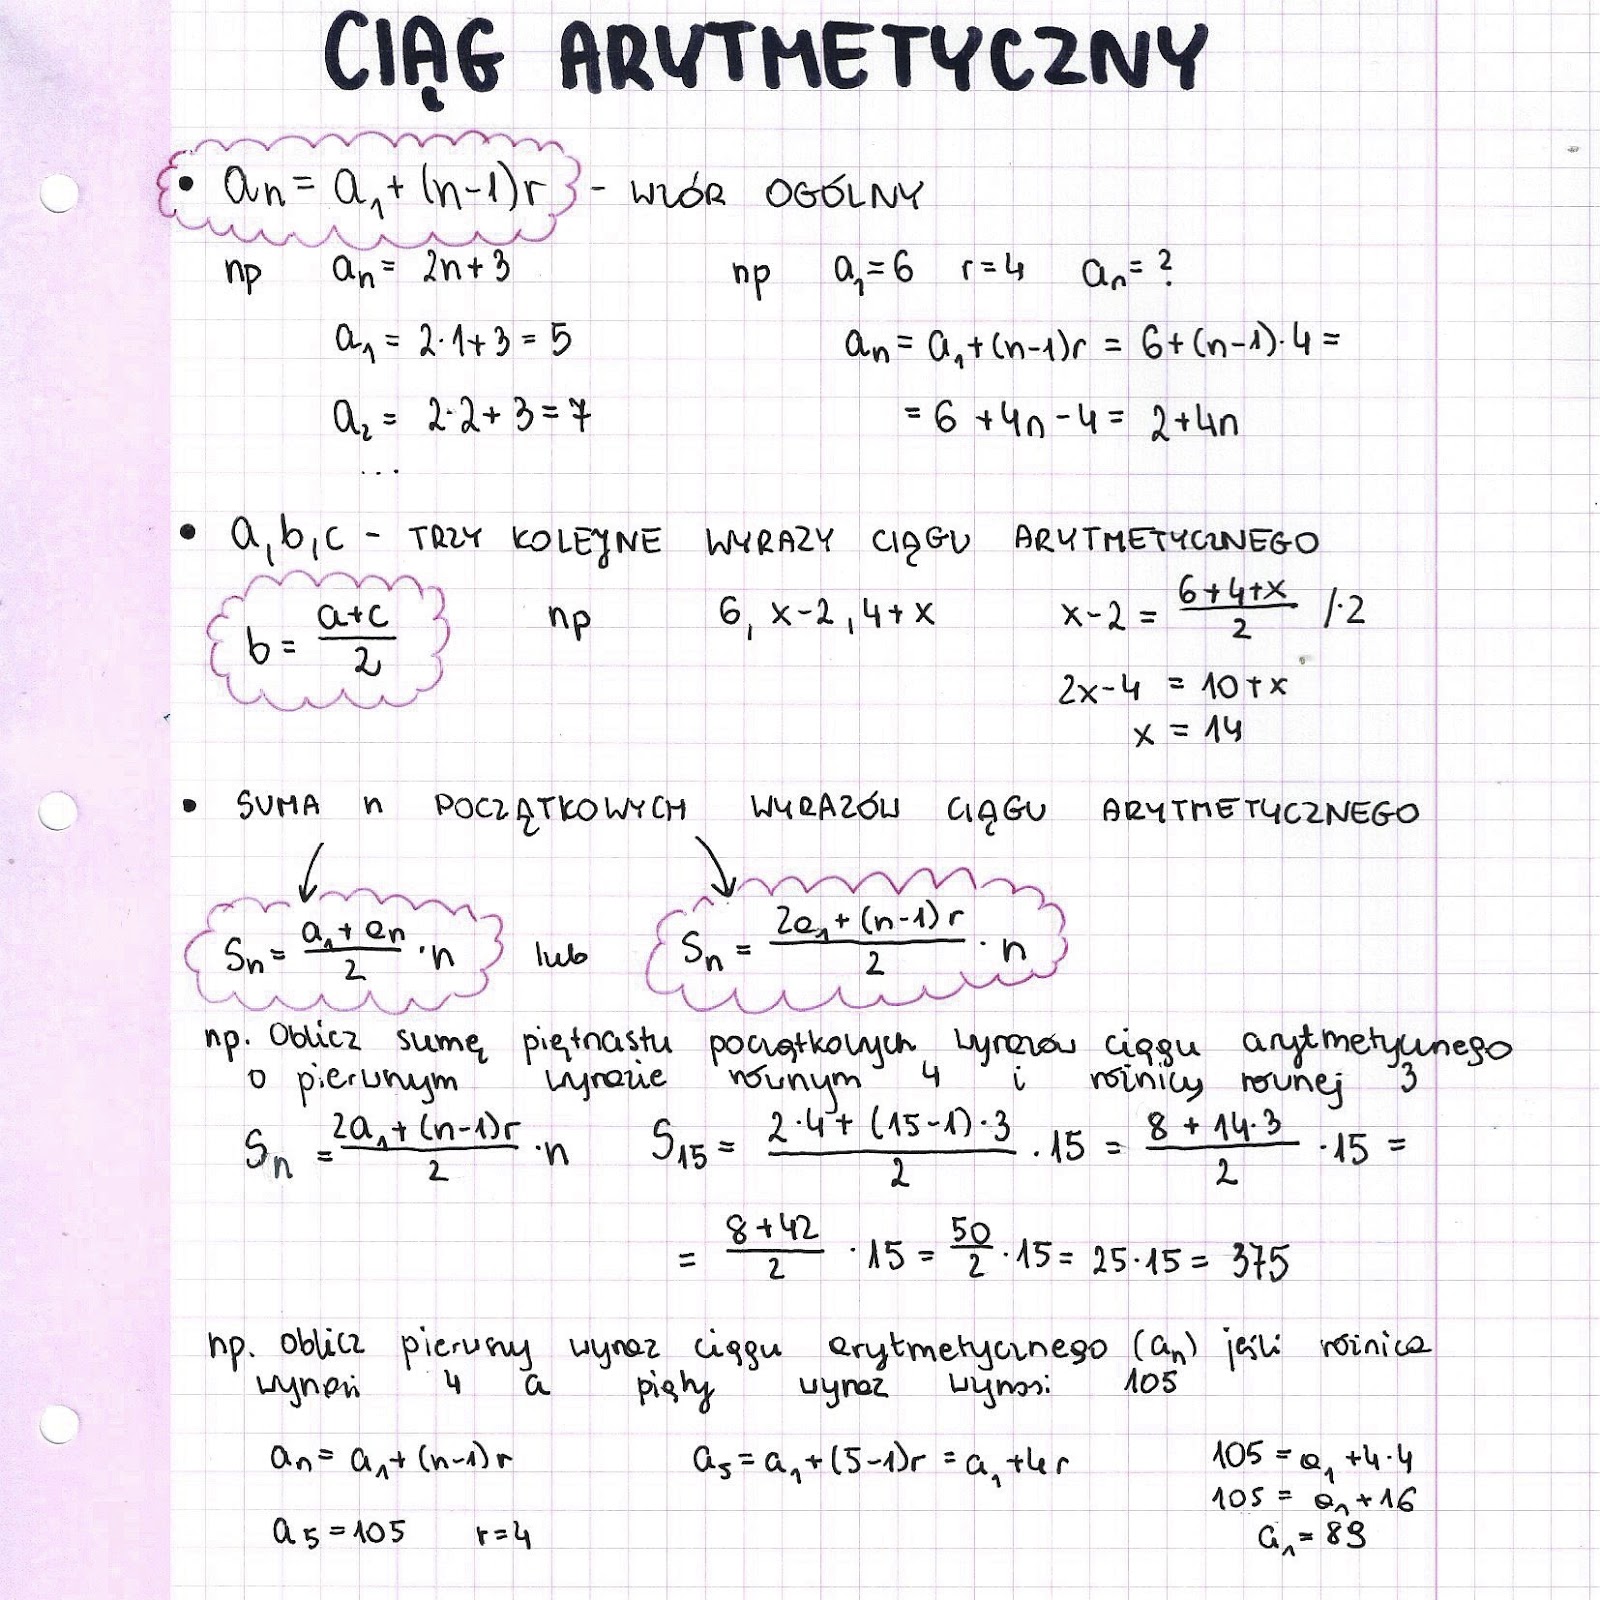 CIĄG ARYTMETYCZNY
• an = a₁ + (n-1)r - WZÓR OGÓLNY
np an = 2n+3 np a₁=6 r=4 an=?
a₁ = 2·1+3 = 5 an = a₁+(n-1)r = 6+(n-1)·4 =
a₂ = 2·2+3=7 = 6+4n-4 = 2+4n
...
• a, b, c - TRZY KOLEJNE WYRAZY CIĄGU ARYTMETYCZNEGO
b = (a+c)/2 np 6, x-2, 4+x x-2 = (6+4+x)/2 /·2
2x-4 = 10+x
x = 14
• SUMA n POCZĄTKOWYCH WYRAZÓW CIĄGU ARYTMETYCZNEGO
Sn = (a₁+an)/2 · n lub Sn = (2a₁+(n-1)r)/2 · n
np. Oblicz sumę piętnastu początkowych wyrazów ciągu arytmetycznego
o pierwszym wyrazie równym 4 i różnicy równej 3
Sn = (2a₁+(n-1)r)/2 · n S₁₅ = (2·4+(15-1)·3)/2 · 15 = (8+14·3)/2 · 15 =
= (8+42)/2 · 15 = 50/2 · 15 = 25·15 = 375
np. Oblicz pierwszy wyraz ciągu arytmetycznego (an) jeśli różnica
wynosi 4 a piąty wyraz wynosi 105
an = a₁+(n-1)r a₅ = a₁+(5-1)r = a₁+4r 105 = a₁+4·4
105 = a₁+16
a₅=105 r=4 a₁=89